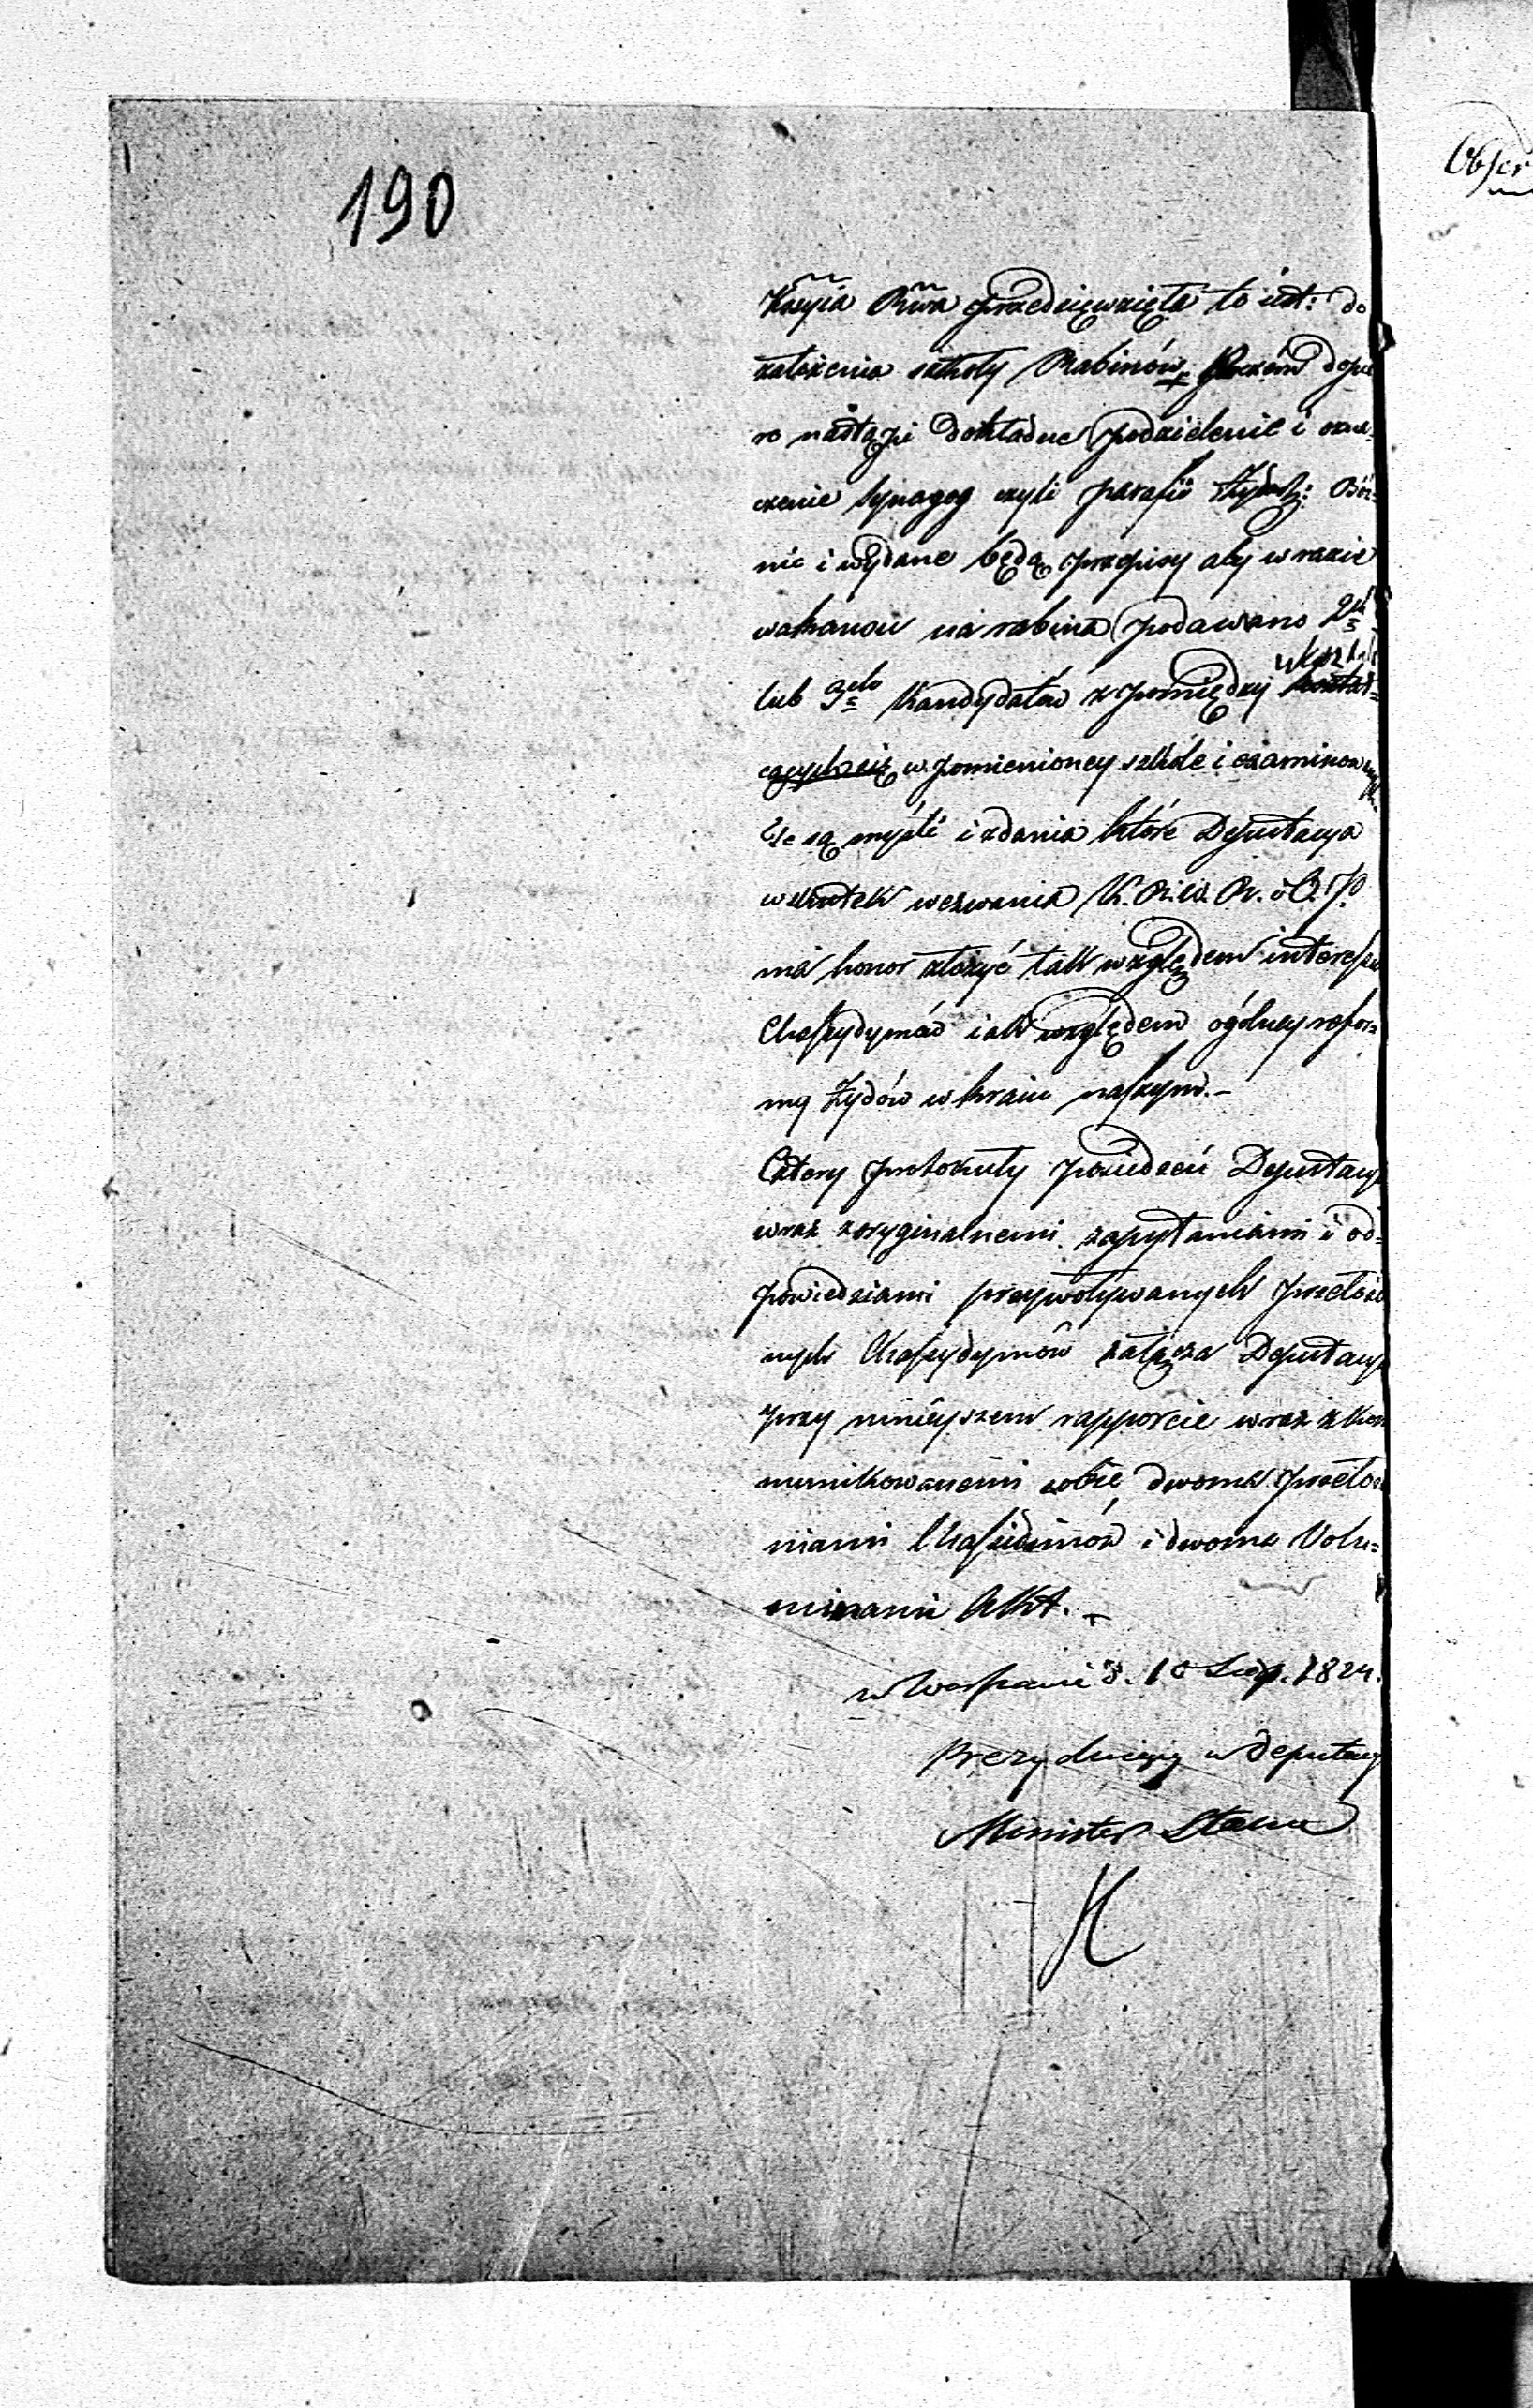 190
Kssyia Rwa przedsięwzięła to iest: do
założenia szkoły Rabinów, poczém dopie
ro nastąpi dokładne podzielenie i ozna-
czenie Synagog czyli parafii Bóż-
nic i wydane będą przepisy aby w razie
wakansu na rabina podawano 2ch
lub 3ch Kandydatów z pomiędzy ukształ
cących się w pomienioney szkole i examinowanych.
Te są myśli i zdania które Deputacya
wskutek wezwania K. R. W. R. i O. P.
má honor złożyć tak względem interessu
Chassydymów iak względem ogólney refor-
my Żydów w kraiu naszym.-
Cztery protokuły posiedzeń Deputacyi
wraz z oryginalnemi zapytaniami i od-
powiedziami przywoływanych przełożo
nych Chassydymów załącza Deputacya
przy ninieyszem rapporcie wraz z kom
munikowanemi sobie dwoma przełoże
niami Chassidimów i dwoma Volu-
minami Akt. -
w Warszawie d. 10 Sierp. 1824.
Prezyduiący w Deputacyi
Minister Stanu
Obser